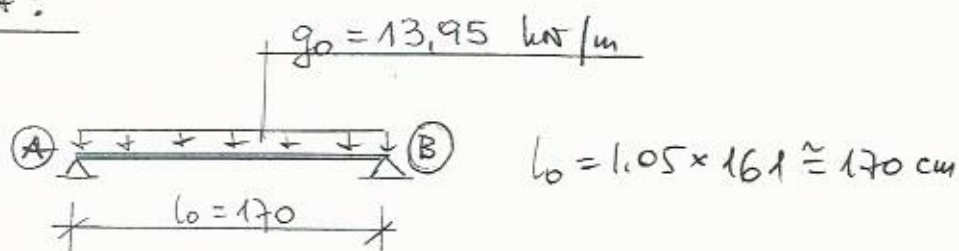 g₀ = 13,95 kN/m
A B
l₀ = 1.05 × 161 ≅ 170 cm
l₀ = 170